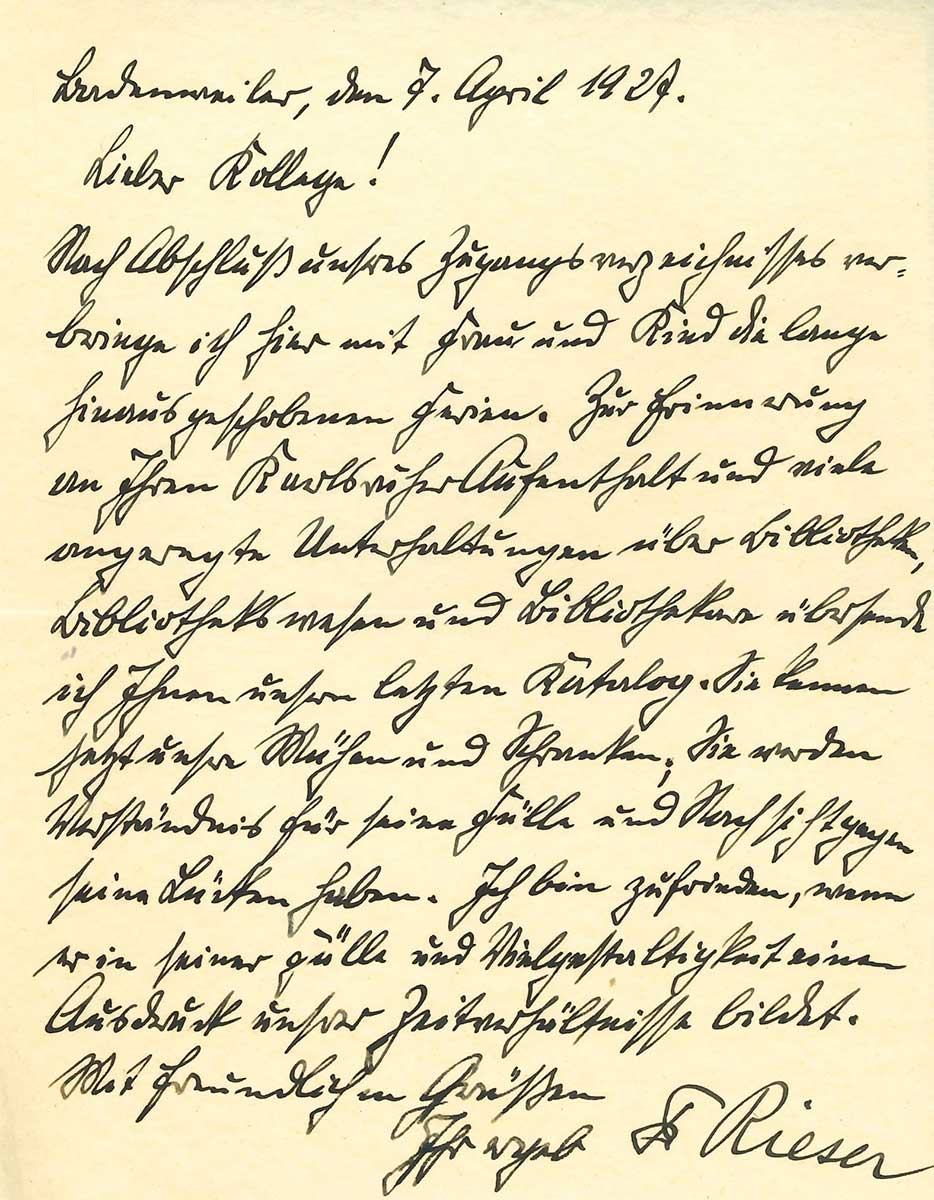 Badenweiler, den 7. April 1927.
Lieber Kollege!
Nach Abschluß unsres Zugangsverzeichnisses ver-
bringe ich hier mit Frau und Kind die lange
hinausgeschobenen Ferien. Zur Erinnerung
an Ihren Karlsruher Aufenthalt und viele
angeregte Unterhaltungen über Bibliotheken,
Bibliothekswesen und Bibliothekare übersende
ich Ihnen unsren letzten Katalog. Sie kennen
jetzt unsre Mühen und Schranken; Sie werden
Verständnis für seine Fülle und Nachsicht gegen
seine Lücken haben. Ich bin zufrieden, wenn
er in seiner Fülle und Vielgestaltigkeit einen
Ausdruck unsrer Zeitverhältnisse bildet.
Mit freundlichen Grüßen
Ihr ergeb F Rieser